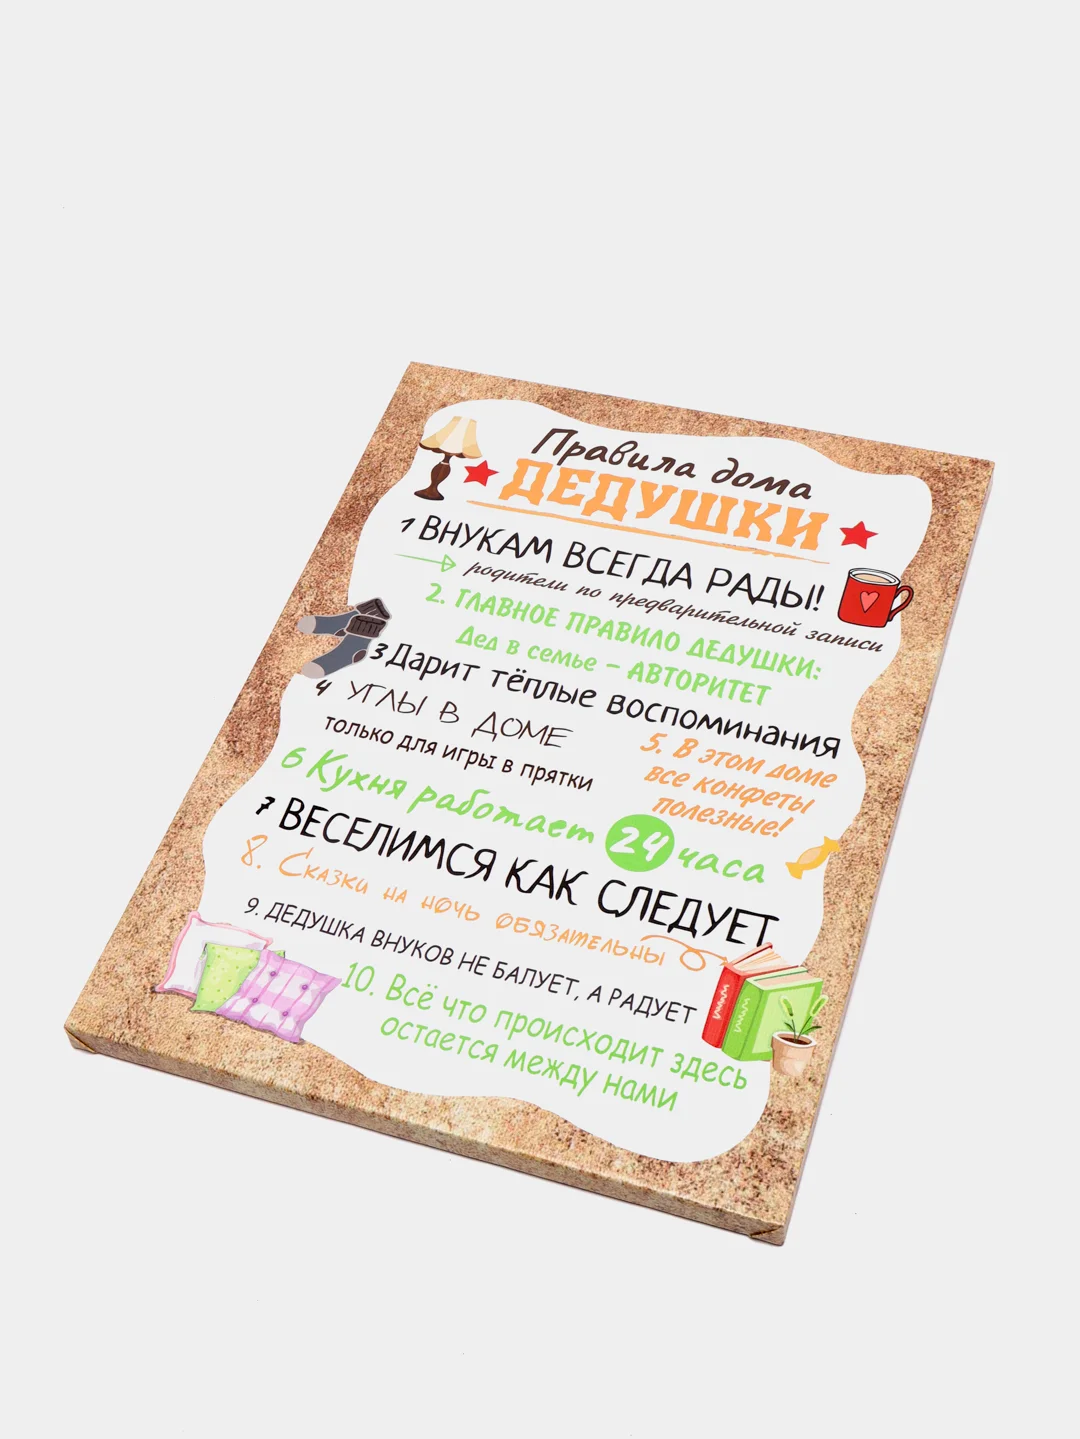 Правила дома
ДЕДУШКИ
1 ВНУКАМ ВСЕГДА РАДЫ!
родители по предварительной записи
2. ГЛАВНОЕ ПРАВИЛО ДЕДУШКИ:
Дед в семье – АВТОРИТЕТ
3 Дарит тёплые воспоминания
4 УГЛЫ В ДОМЕ
только для игры в прятки
5. В этом доме
все конфеты
полезные!
6 Кухня работает 24 часа
7 ВЕСЕЛИМСЯ КАК СЛЕДУЕТ
8. Сказки на ночь обязательны
9. ДЕДУШКА ВНУКОВ НЕ БАЛУЕТ, А РАДУЕТ
10. Всё что происходит здесь
остается между нами